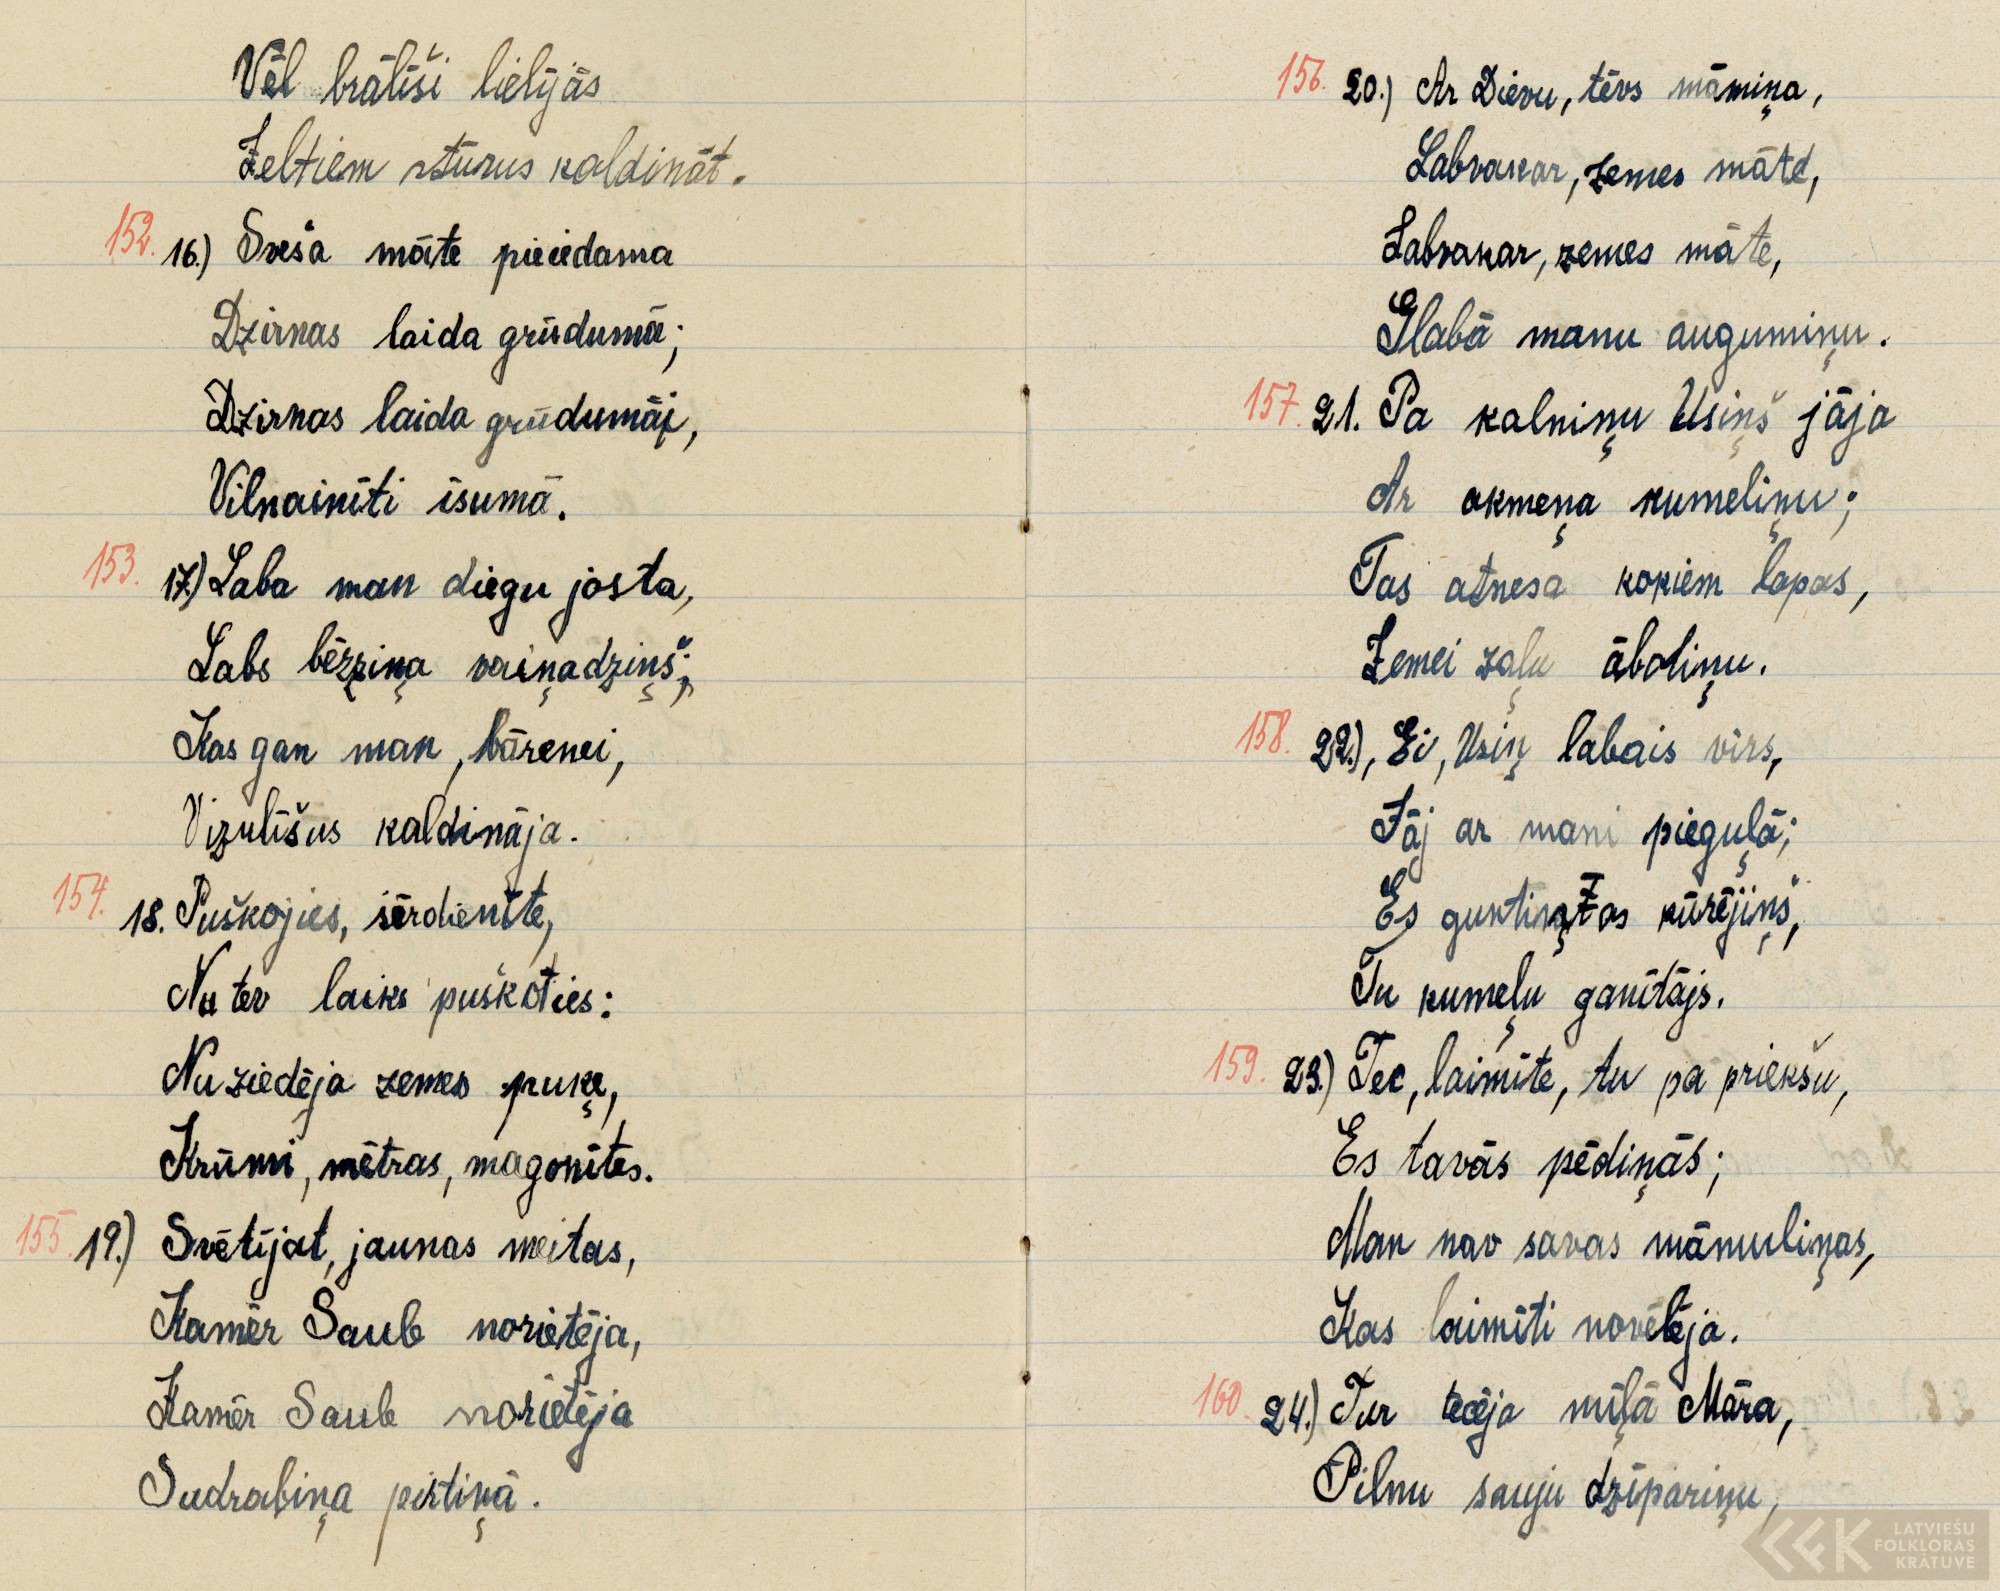 Vēl brālīši lielījās
Zeltiem stūrus kaldināt.
152. 16.) Sveša māte pieiedama
Dzirnas laida grūdumā;
Dzirnas laida grūdumāi,
Vilnainīti īsumā.
153. 17.) Laba man diegu josta,
Labs bērziņa vaiņadziņš;
Kas gan man, bārenei,
Vizulīšus kaldināja.
154. 18. Puškojies, sērdienīte,
Nu tev laiks puškoties:
Nu ziedēja zemes puķe,
Krūmi, mētras, magonītes.
155. 19.) Svētījat, jaunas meitas,
Kamēr Saule norietēja,
Kamēr Saule norietēja
Sudrabiņa pirtiņā.
156. 20.) Ar Dievu, tēvs māmiņa,
Labvakar, zemes māte,
Labvakar, zemes māte,
Glabā manu augumiņu.
157. 21. Pa kalniņu Usiņš jāja
Ar akmeņa kumeliņu;
Tas atnesa kokiem lapas,
Zemei zaļu āboliņu.
158. 22.), Ei, Usiņ labais vīrs,
Jāj ar mani pieguļā;
Es guntiņas kūrējiņš,
Tu kumeļu ganītājs.
159. 23.) Tec, laimīte, tu pa priekšu,
Es tavās pēdiņās;
Man nav savas māmuliņas,
Kas laimīti novēlēja.
160. 24.) Tur tecēja mīļā Māra,
Pilnu sauju dzīpariņu,
LATVIEŠU
FOLKLORAS
KRĀTUVE